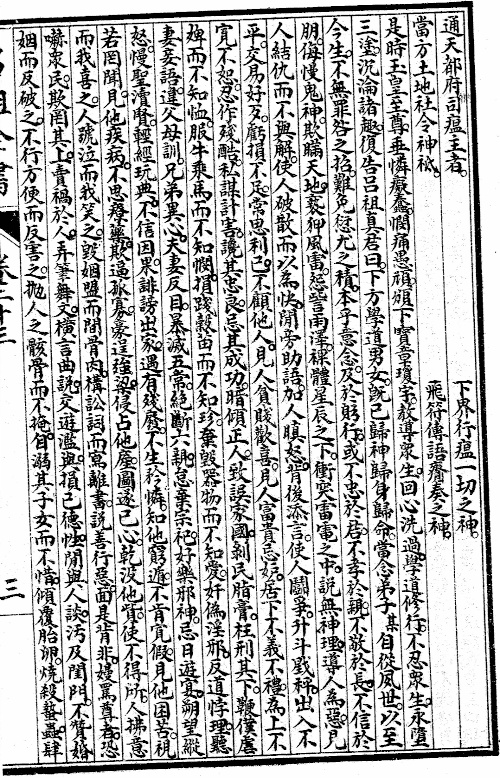 通天都府司瘟主者。　下界行瘟一切之神。
當方土地社令神祗。　飛符傳語齎奏之神。
是時玉皇至尊。垂憐癡蠢。憫痛愚頑。頒下寶章瓊字。教導衆生。回心洗過。學道修行。不忍衆生。永墮
三塗。沉淪諸趣。復告呂祖眞君曰。下方學道男女。旣已歸神歸身歸命。當念弟子某自從夙世。以至
今生。不無罪咎之招。難免愆尤之積。本乎意念。及於躬行。或不忠於君。不孝於親。不敬於長。不信於
朋。侮慢鬼神。欺瞞天地。褻狎風雷。怨咨雨澤。裸體星辰之下。衝突雷電之中。說無神理。導人爲惡。見
人結仇而不與解。使人破散而以爲快。閒旁助語。加人瞋怒。背後添言。使人鬬爭。升斗戥秤。出入不
平。交易好歹。虧損不足。常思利己。不顧他人。見人貧賤歡喜。見人富貴忌妬。居下不義不禮。爲上不
寬不恕。忍作殘酷。私謀計害。讒其忠良。忌其成功。暗傾正人。致誤家國。剝民脂膏。枉刑其下。鞭僕虐
婢而不知恤。服牛乘馬而不知憫。損踐穀苗而不知珍。棄毀器物而不知愛。奸僞淫邪。反道悖理。聽
妻妾語。違父母訓。兄弟異心。夫妻反目。暴滅五常。絶斷六親。忌棄宗祀。好樂邪神。忌日遊宴。朔望縱
怒。慢聖瀆賢。輕經玩典。不信因果。誹謗出家。遇有殘廢。不生矜憐。知他窮遁。不肯寬假。見他困苦。視
若罔聞。見他疾病。不思療藥。欺逼孤寡。豪逞強梁。侵占他產。圖遂己心。乾沒他貲。使不得所。人拂意
而我喜之。人號泣而我笑之。毀姻盟而間骨肉。構訟詞而寫離書。說善行惡。面是背非。嫚罵尊者。恐
嚇衆民。欺罔其上。賣禍於人。弄筆舞文。橫言曲說。交遊濫與。損己德性。閒與人談。汚及閨門。不贊婚
姻而反破之。不行方便而反害之。拋人之骸骨而不掩。自溺其子女而不惜。傾覆胎卵。燒殺蟄蟲。肆
三